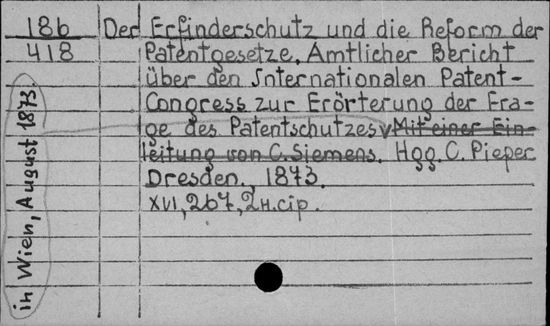 186
418
Der Erfinderschutz und die Reform der
Patentgesetze. Amtlicher Bericht
über den Internationalen Patent-
Congress zur Erörterung der Fra-
ge des Patentschutzes Mit einer Ein-
leitung von C. Siemens. Hgg. C. Pieper
Dresden., 1873.
XVI, 267, 2 н. стр.
in Wien, August 1873